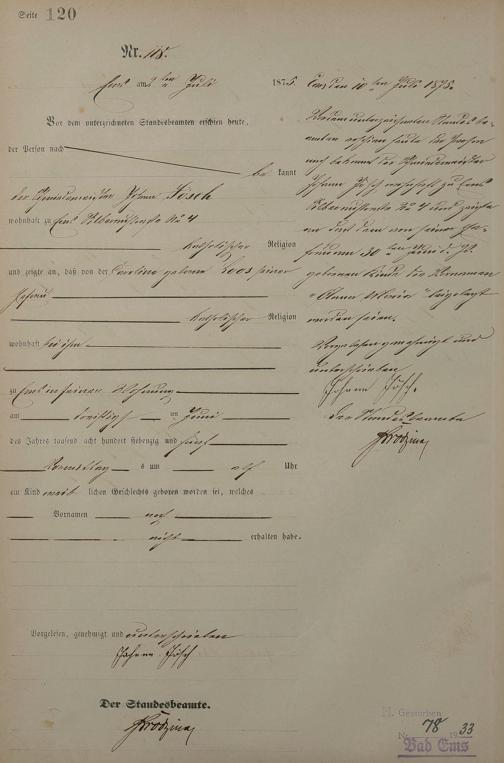 Seite 120
Nr. 118.
Ems am 2ten Juli 1875.
Vor dem unterzeichneten Standesbeamten erschien heute,
der Person nach
be kannt
der Johann Fösch
wohnhaft zu Ems No 4
katholischer Religion
und zeigte an, daß von der Caroline geborene Loos seiner
Ehefrau
katholischer Religion
wohnhaft bei ihm
zu Ems in seiner Wohnung
am dreißigsten Juni
des Jahres tausend acht hundert siebenzig und fünf
Vormittags um elf Uhr
ein Kind weib lichen Geschlechts geboren worden sei, welches
Vornamen noch
nicht erhalten habe.
Vorgelesen, genehmigt und unterschrieben
Johann Fösch
Der Standesbeamte.
Ems den 10ten Juli 1875.
Vor dem unterzeichneten Standesbe-
amten erschien heute der Person
nach bekannt der
Johann Fösch wohnhaft zu Ems
No 4 und zeigte
an daß dem von seiner Ehe-
frau am 30ten Juni d. Js.
geborenen Kinde die Vornamen
"Anna Maria" beigelegt
worden seien.
Vorgelesen genehmigt und
unterschrieben
Johann Fösch.
Der Standesbeamte
H. Gestorben
Nr. 78 1933
Bad Ems